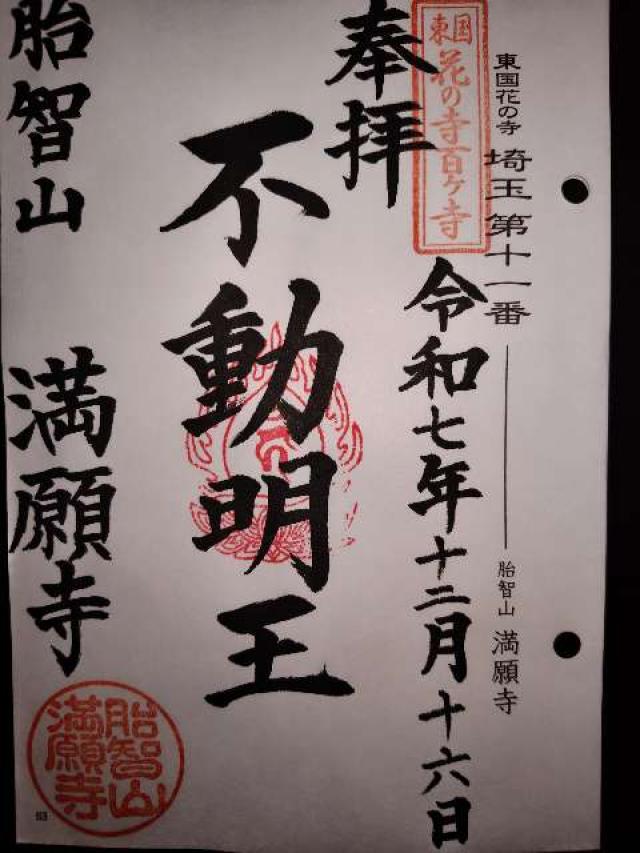 東国花の寺 埼玉 第十一番 胎智山 満願寺
東国
花の寺百ヶ寺
奉拝
令和七年十二月十六日
不動明王
胎智山 満願寺
胎智山
満願寺